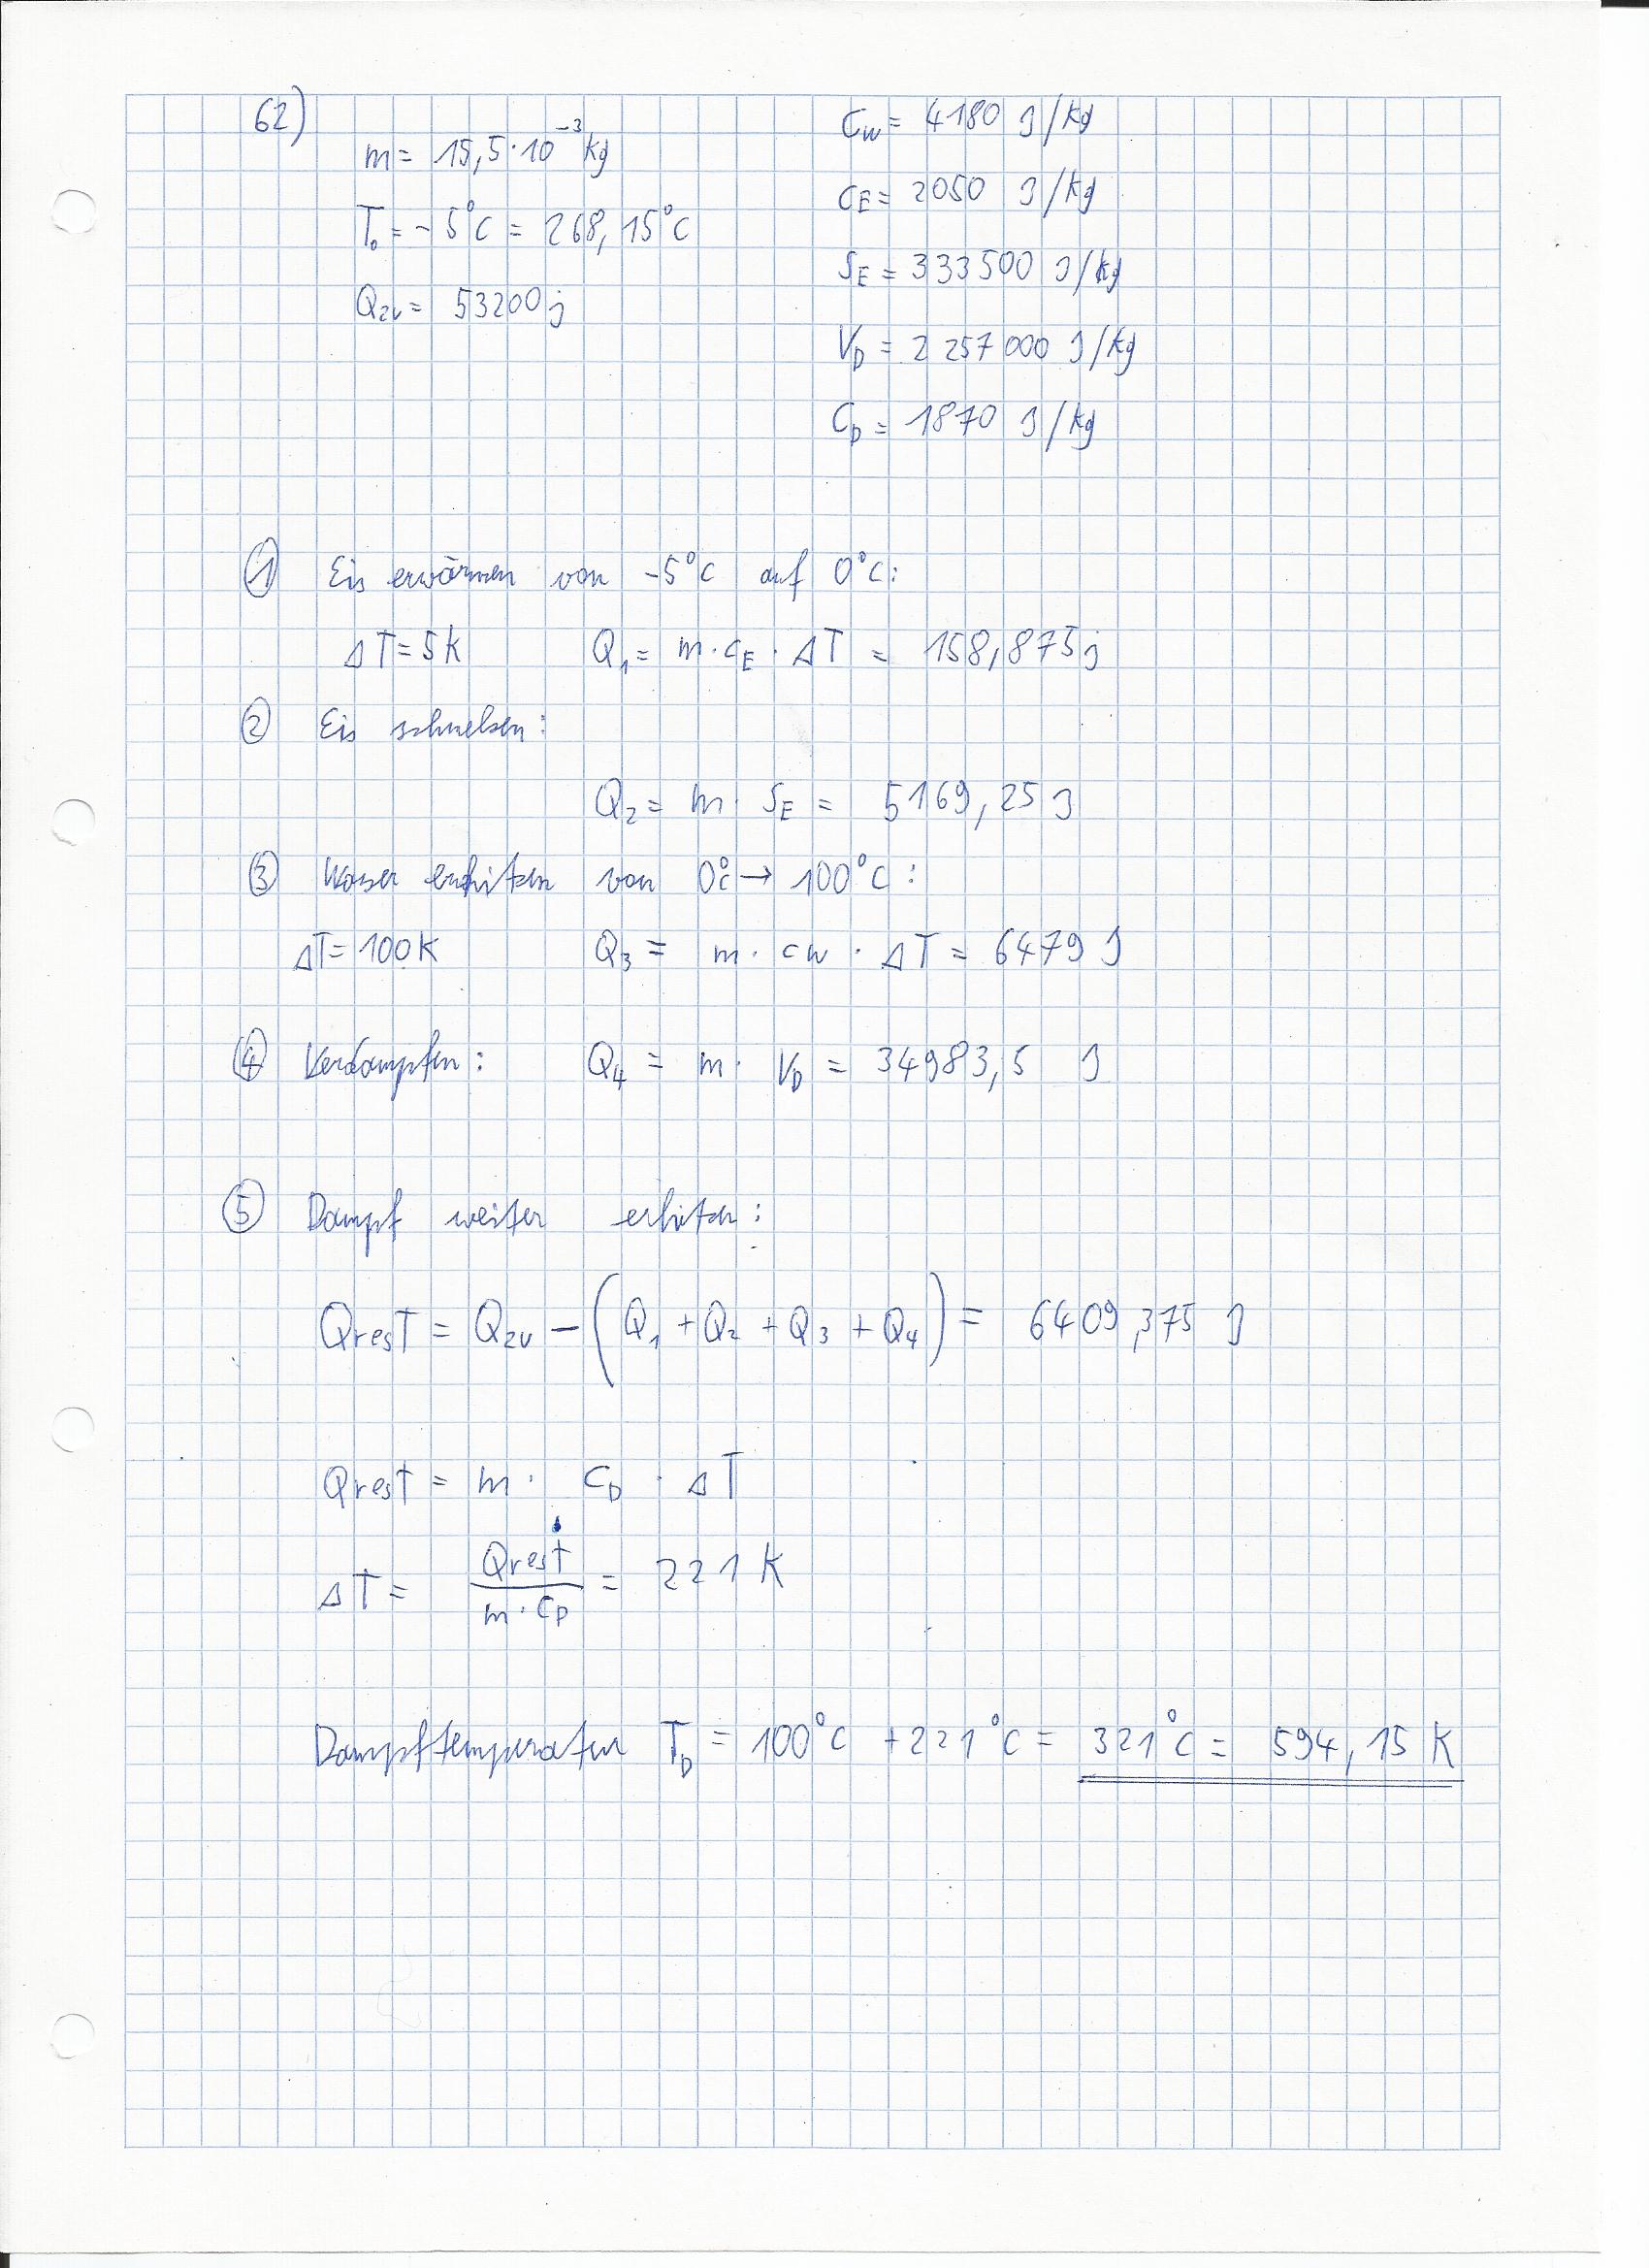 62)
m = 15,5·10⁻³ kg
T₀ = -5°C = 268,15°C
Qzu = 53200 j
Cw = 4180 J/kg
CE = 2050 J/kg
SE = 333500 J/kg
VD = 2 257 000 J/kg
CD = 1870 J/kg
① Eis erwärmen von -5°C auf 0°C:
ΔT = 5K Q₁ = m·cE·ΔT = 158,875 j
② Eis schmelzen:
Q₂ = m· SE = 5169,25 J
③ Wasser erhitzen von 0°C → 100°C:
ΔT = 100K Q₃ = m·cw·ΔT = 6479 J
④ Verdampfen: Q₄ = m· VD = 34983,5 J
⑤ Dampf weiter erhitzen:
Qrest = Qzu − (Q₁ + Q₂ + Q₃ + Q₄) = 6409,375 J
Qrest = m· CD · ΔT
ΔT = Qrest / m·CD = 221 K
Dampftemperatur TD = 100°C + 221°C = 321°C = 594,15 K